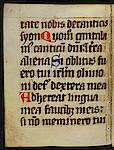 tate nobis de canticis
syon Quom̄ cantabim
in canticū dn̄i in terra
aliena Si oblitus
fuero tui ierłm obliuio
ni det̄ dextera mea
Adhereat lingua
mea faucib; meis si
nō meminero tui